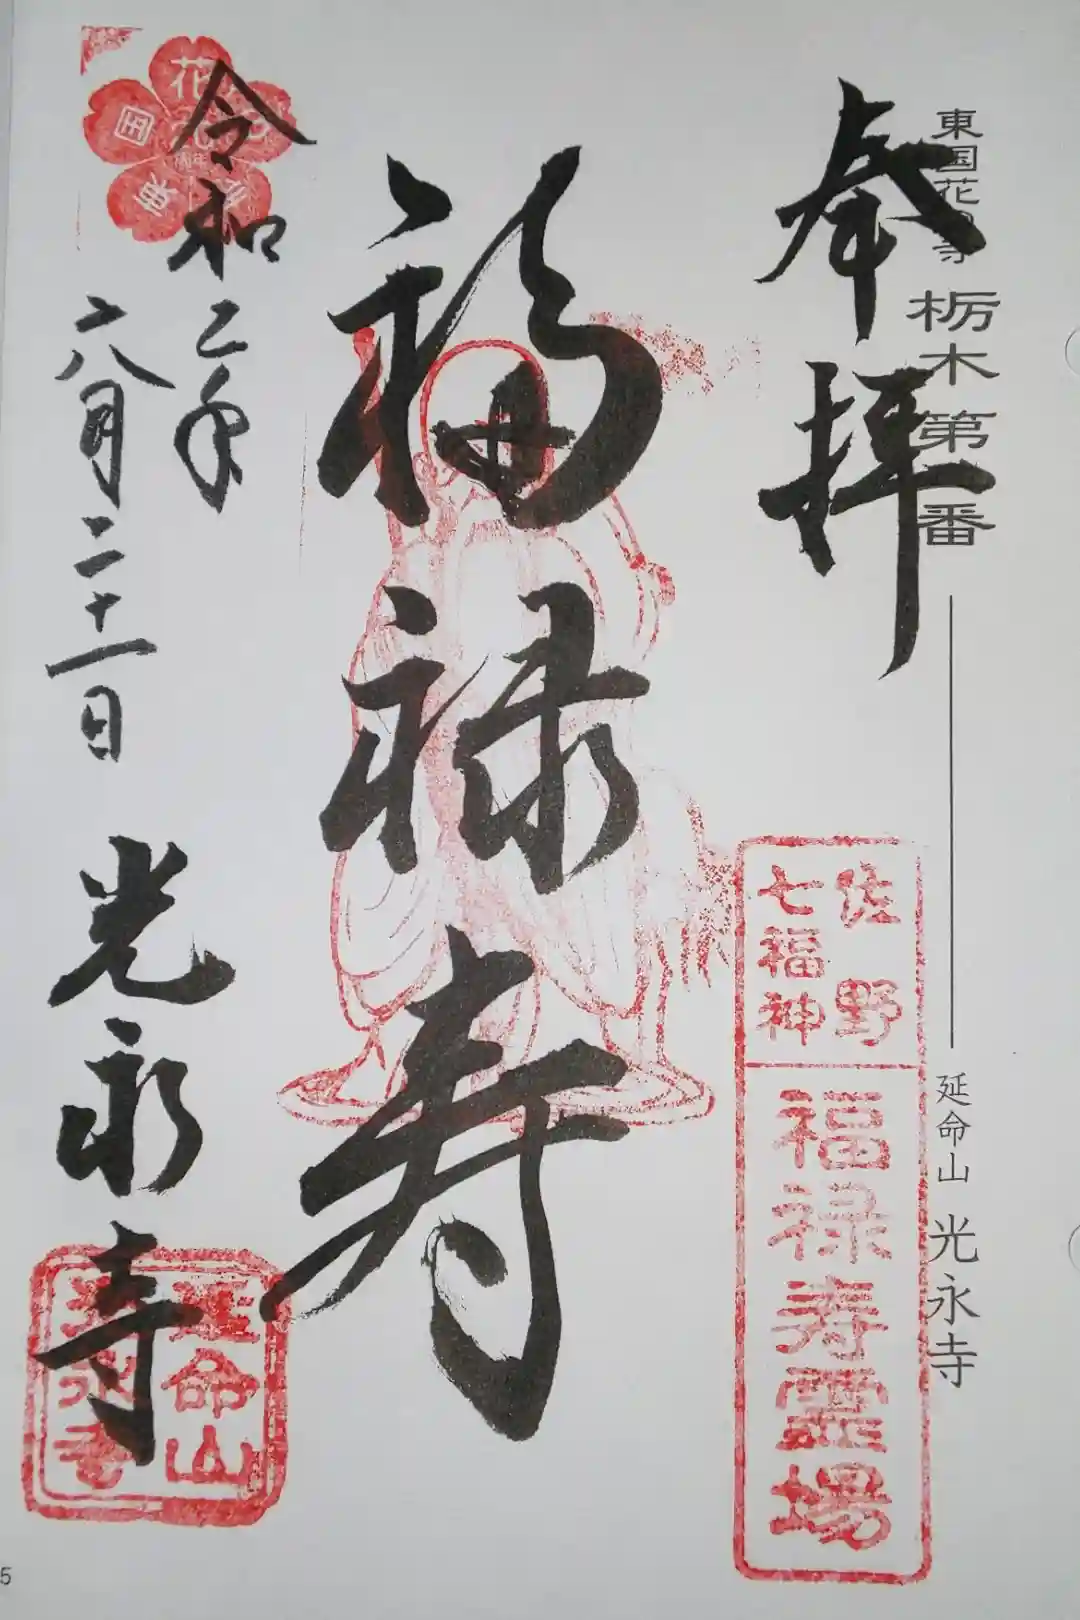 東国花の寺 栃木第 番 延命山 光永寺
奉拝
佐野
七福神
福禄寿霊場
福禄寿
令和二年
六月二十一日 光永寺
延命山
光永寺
東国花
周年
5